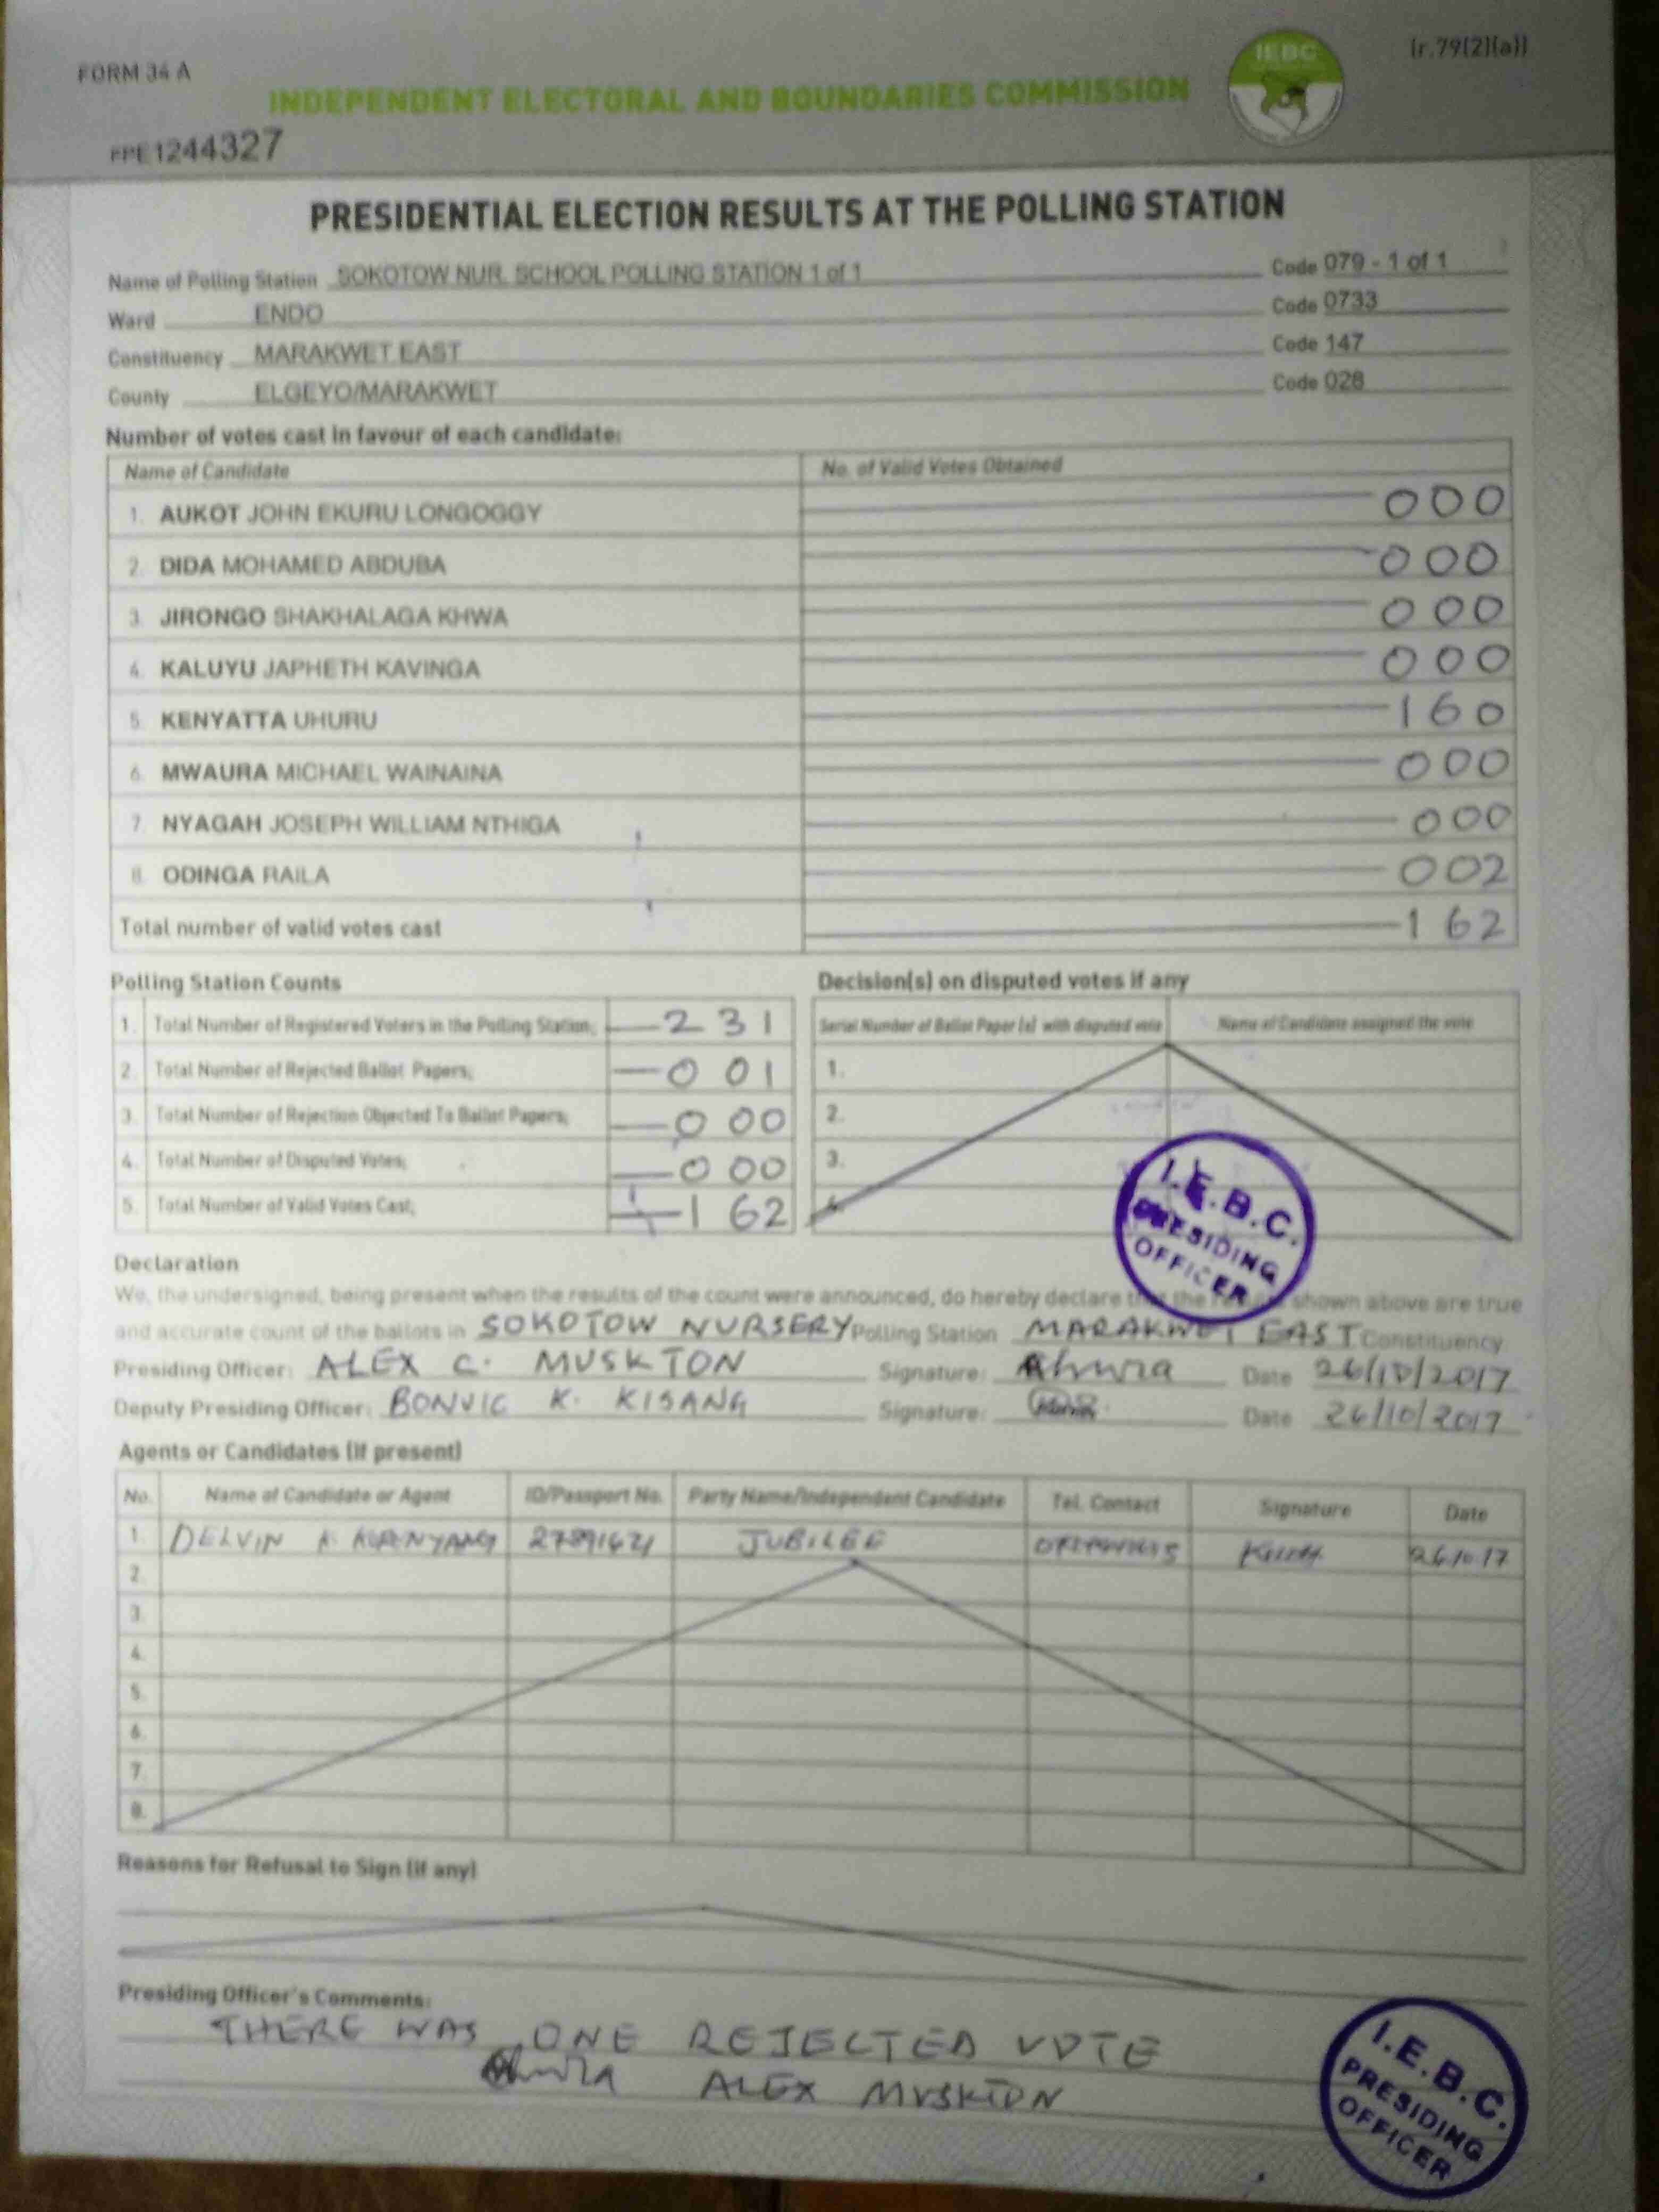 FORM 34 A
(r.79(2)(a))
IEBC
INDEPENDENT ELECTORAL AND BOUNDARIES COMMISSION
FPE1244327
PRESIDENTIAL ELECTION RESULTS AT THE POLLING STATION
Name of Polling Station SOKOTOW NUR. SCHOOL POLLING STATION 1 of 1 Code 079 - 1 of 1
Ward ENDO Code 0733
Constituency MARAKWET EAST Code 147
County ELGEYO/MARAKWET Code 028
Number of votes cast in favour of each candidate:
Name of Candidate No. of Valid Votes Obtained
1. AUKOT JOHN EKURU LONGOGGY 000
2. DIDA MOHAMED ABDUBA 000
3. JIRONGO SHAKHALAGA KHWA 000
4. KALUYU JAPHETH KAVINGA 000
5. KENYATTA UHURU 160
6. MWAURA MICHAEL WAINAINA 000
7. NYAGAH JOSEPH WILLIAM NTHIGA 000
8. ODINGA RAILA 002
Total number of valid votes cast 162
Polling Station Counts Decision(s) on disputed votes if any
Serial Number of Ballot Paper (s) with disputed vote Name of Candidate assigned the vote
1. Total Number of Registered Voters in the Polling Station; 231
2. Total Number of Rejected Ballot Papers; 001 1.
3. Total Number of Rejection Objected To Ballot Papers; 000 2.
4. Total Number of Disputed Votes; 000 3.
5. Total Number of Valid Votes Cast; 162 4.
I.E.B.C.
PRESIDING
OFFICER
Declaration
We, the undersigned, being present when the results of the count were announced, do hereby declare that the results shown above are true
and accurate count of the ballots in SOKOTOW NURSERY Polling Station MARAKWET EAST Constituency
Presiding Officer: ALEX C. MUSKTON Signature: Date 26/10/2017
Deputy Presiding Officer: BONVIC K. KISANG Signature: Date 26/10/2017
Agents or Candidates (if present)
No. Name of Candidate or Agent ID/Passport No. Party Name/Independent Candidate Tel. Contact Signature Date
1. DELVIN K. JUBILEE 26.10.17
2.
3.
4.
5.
6.
7.
8.
Reasons for Refusal to Sign (if any)
Presiding Officer's Comments:
THERE WAS ONE REJECTED VOTE
ALEX MUSKTON
I.E.B.C.
PRESIDING
OFFICER